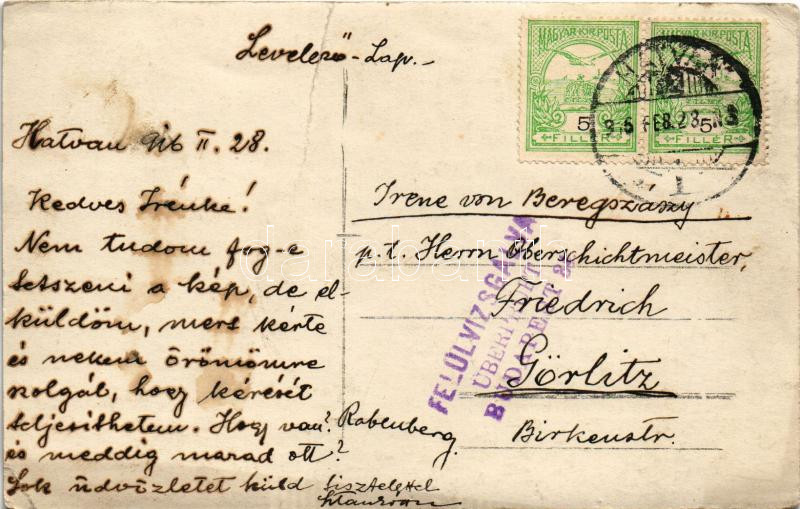 Levelező-Lap.
MAGYAR KIR. POSTA
5
FILLÉR
MAGYAR KIR. POSTA
5
FILLÉR
HATVAN
FEB. 28
Hatvan 916 II. 28.
Kedves Irénke!
Nem tudom fog-e
tetszeni a kép, de el-
küldöm, mert kérte
és nekem örömömre
szolgál, hogy kérését
teljesithetem. Hogy van?
és meddig marad ott?
Sok üdvözletet küld tisztelettel
Irene von Beregszaszy
p. t. Herrn Oberschichtmeister,
Friedrich
Görlitz
Rabenberg.
Birkenstr.
FELÜLVIZSGÁLVA
ÜBERPRÜFT
BUDAPEST
darabanth